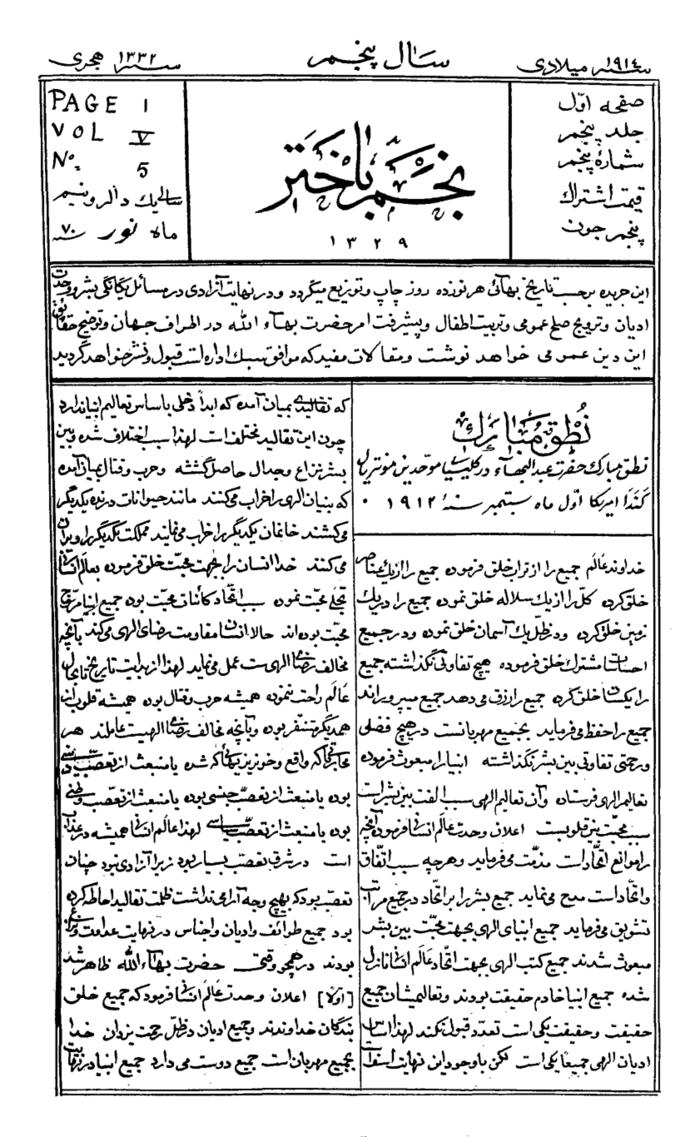 سنه ١٩١٤ میلادی
سال پنجم
سنه ١٣٣٢ هجری
صفحه اوّل
جلد پنجم
شمارهٔ پنجم
قیمت اشتراک
پنجم جون
نجم باختر
١٣٢٩
PAGE 1
VOL V
No. 5
سالی یک دالر و نیم
ماه نور سنه ٧٠
این جریده برحسب تاریخ بهائی هر نوزده روز چاپ و توزیع میگردد و در نهایت آزادی در مسائل یگانگی بشر و وحدت
ادیان و ترویج صلح عمومی و تربیت اطفال و پیشرفت امر حضرت بهاء الله در اطراف جهان و توضیح حقائق
این دین عمومی خواهد نوشت و مقالات مفید که موافق مسلک اداره است قبول و نشر خواهد گردید
نطق مبارک
نطق مبارک حضرت عبدالبهاء در کلیسیا موحّدین مونتریال
کندا امریکا اوّل ماه سپتمبر سنهٔ ١٩١٢
خداوند عالم جمیع را از تراب خلق فرموده جمیع را از یک عناصر
خلق کرده کلّ را از یک سلاله خلق نموده جمیع را در یک
زمین خلق کرده و در ظلّ یک آسمان خلق نموده و در جمیع
احساسات مشترک خلق فرموده هیچ تفاوتی نگذاشته جمیع
را یکسان خلق کرده جمیع را رزق می دهد جمیع میپروراند
جمیع را حفظ می فرماید بجمیع مهربانست در هیچ فضلی
و رحمتی تفاوتی بین بشر نگذاشته انبیا را مبعوث فرموده
تعالیم الهی فرستاده و آن تعالیم الهی سبب الفت بین بشر است
سبب محبّت بین قلوبست اعلان وحدت عالم انسانی فرموده آنچه
را موانع اتّحاد است مذمّت می فرماید و هرچه سبب اتّفاق
و اتّحاد است مدح می نماید جمیع بشر را بر اتّحاد در جمیع مراتب
تشویق می فرماید جمیع انبیای الهی بجهت محبّت بین بشر
مبعوث شدند جمیع کتب الهی بجهت اتّحاد عالم انسانی نازل
شده جمیع انبیا خادم حقیقت بودند و تعالیمشان جمیع
حقیقت و حقیقت یکی است تعدّد قبول نکند لهذا اساس
ادیان الهی جمیعاً یکی است لکن با وجود این نهایت اسف است
که تقالیدی بمیان آمده که ابداً دخلی باساس تعالیم انبیا ندارد
چون این تقالید مختلف است لهذا سبب اختلاف شده و بین
بشر نزاع و جدال حاصل گشته و حرب و قتال بمیان آمده
که بنیان الهی را خراب می کنند مانند حیوانات درنده یکدیگر
می کشند خانمان یکدیگر را خراب می نمایند مملکت یکدیگر را ویران
می کنند خدا انسان را بجهت محبّت خلق فرموده بعالم انسانی
تجلّی محبّت نموده سبب اتّحاد کائنات محبّت بوده جمیع انبیا مروّج
محبّت بوده اند حالا انسان مقاومت رضای الهی می کند بآنچه
مخالف رضای الهی ست عمل می نماید لهذا از بدایت تاریخ تا بحال
عالم راحت ننموده همیشه حرب و قتال بوده همیشه قلوب از
همدیگر متنفر بوده و بآنچه مخالف رضای الهیست عاملند هر
محارباتی که واقع و خونریزیهائی که شده یا منبعث از تعصّب دینی
بوده یا منبعث از تعصّب جنسی بوده یا منبعث از تعصّب وطنی
بوده یا منبعث از تعصّب سیاسی لهذا عالم انسانی همیشه در عذاب
است در شرق تعصّب بسیار بود زیرا آزادی نبود چنان
تعصّب بود که بهیچ وجه آرامی نداشت ظلمت تقالید احاطه کرده
بود جمیع طوائف و ادیان و اجناس در نهایت عداوت و نزاع
بودند در همچو وقتی حضرت بهاءالله ظاهر شد
[اوّلاً] اعلان وحدت عالم انسانی فرمود که جمیع خلق
بندگان خداوندند و جمیع ادیان در ظلّ رحمت یزدان خدا
بجمیع مهربان است جمیع دوست می دارد جمیع انبیا در نهایت